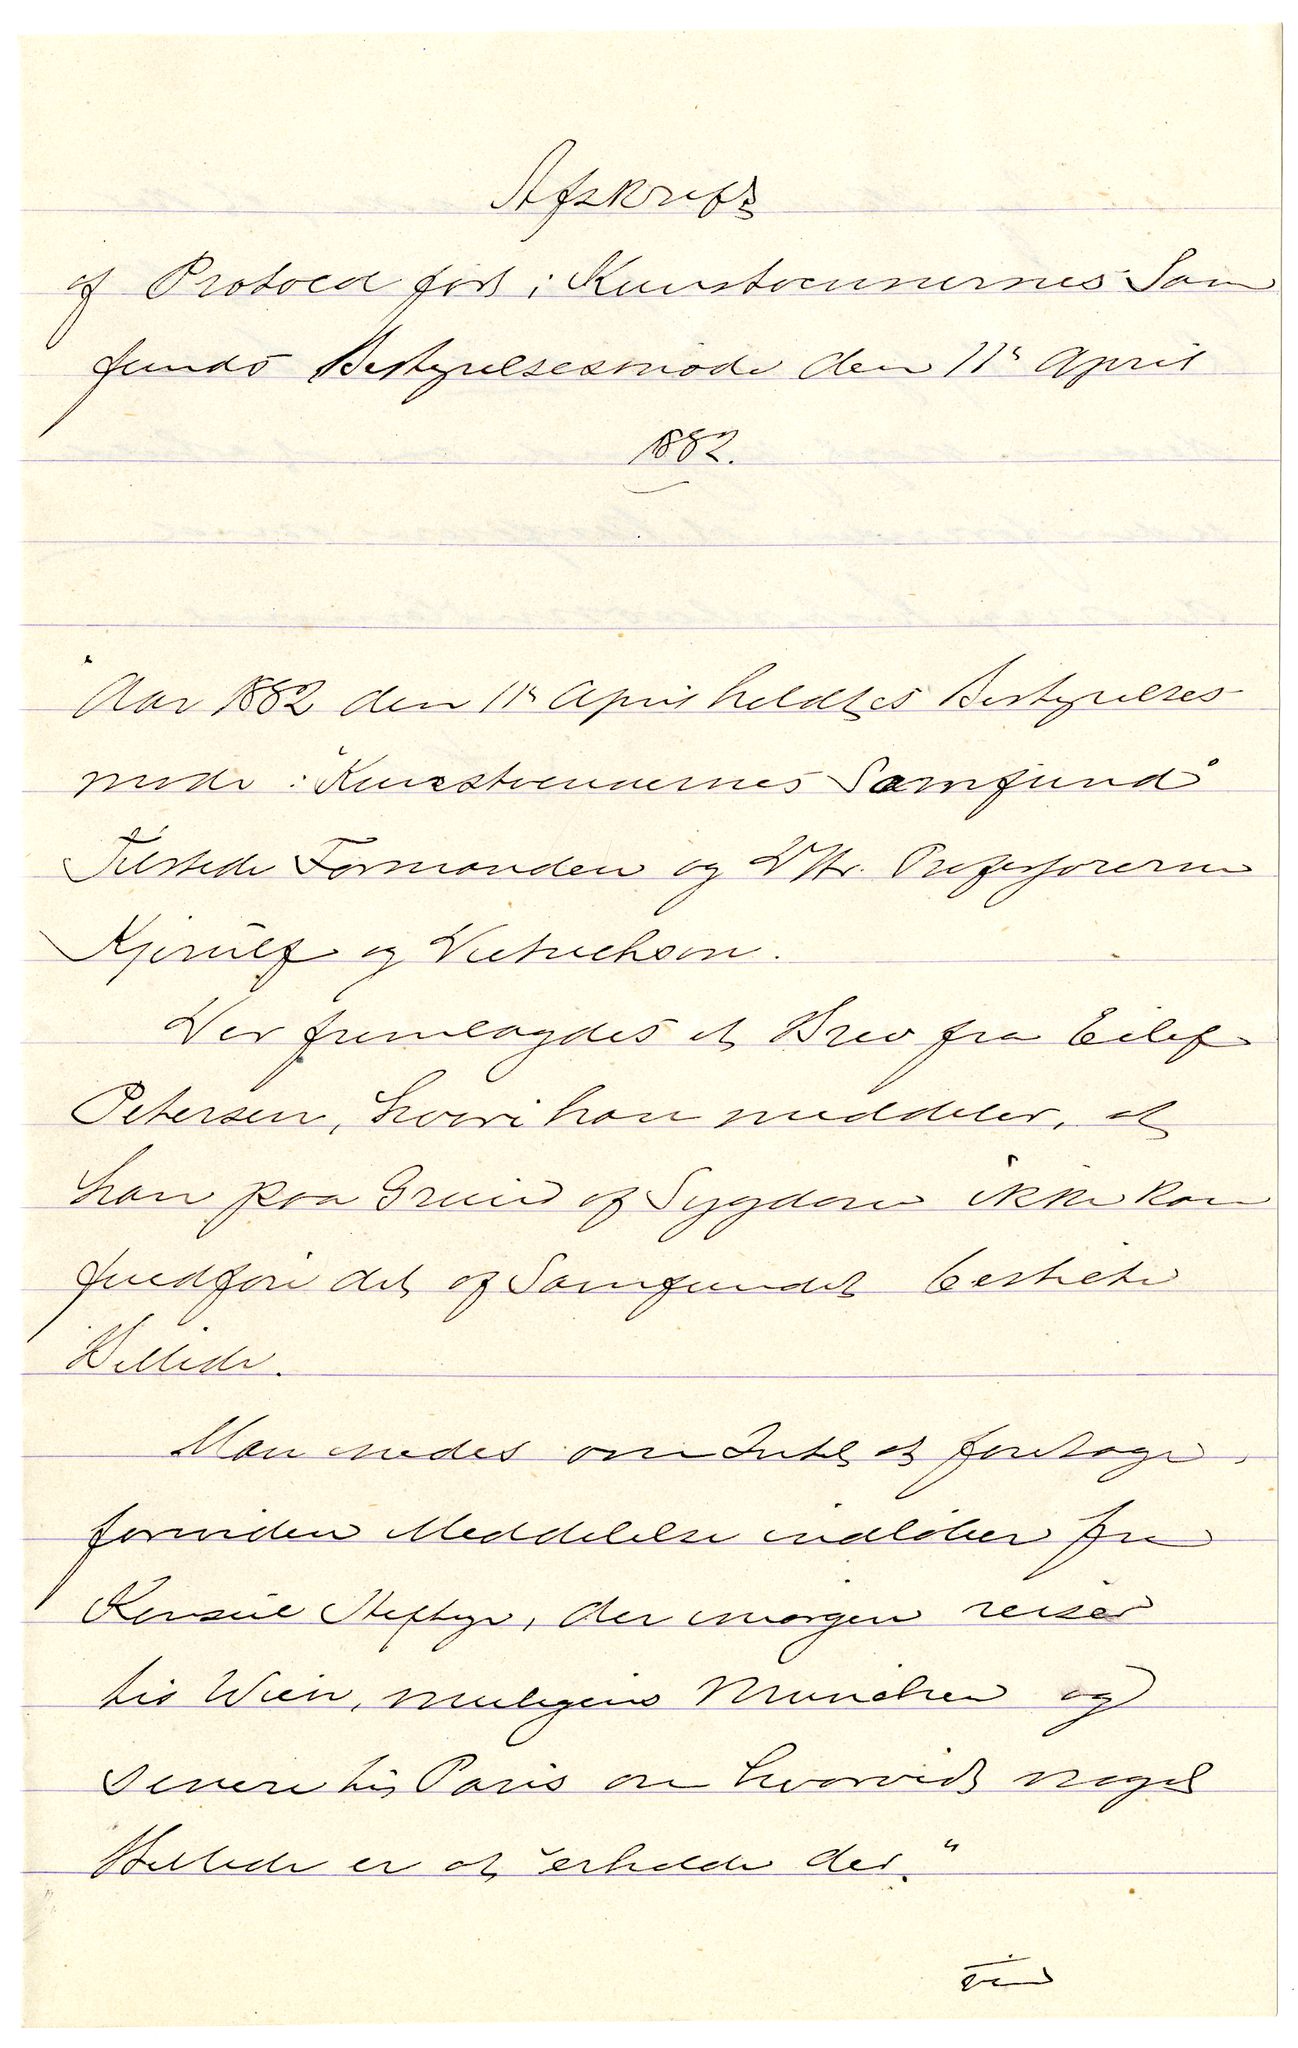 Afskrift
af Protocol ført i Kunstvennernes Sam
funds Bestyrelsesmøde den 11te April
1882.
"Aar 1882 den 11te April holdtes Bestyrelses
møde i "Kunstvennernes Samfund"
Tilstede Formanden og DHr. Professorerne
Kjerulf og Dietrichson.
Der fremlagdes et Brev fra Eilif
Petersen, hvori han meddeler, at
han paa Grund af Sygdom ikke kan
fuldføre det af Samfundet bestilte
Billede.
Man enedes om Intet at foretage,
forinden Meddelelse indløber fra
Konsul Heftye, der imorgen reiser
til Wien, muligens München og
senere til Paris om hvorvidt noget
Billede er at erholde der."